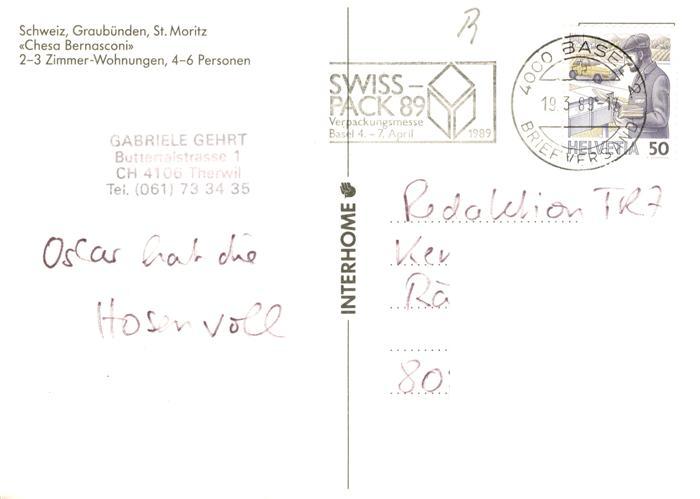 Schweiz, Graubünden, St. Moritz
«Chesa Bernasconi»
2–3 Zimmer-Wohnungen, 4–6 Personen
R
SWISS–
PACK 89
Verpackungsmesse
Basel 4.–7. April
1989
4000 BASEL 2
19.3.89-17
BRIEFVERSAND
HELVETIA 50
GABRIELE GEHRT
CH 4106 Therwil
Tel. (061) 73 34 35
Oscar hat die
Hosen voll
INTERHOME
Redaktion TR7
Ker
Rä
80